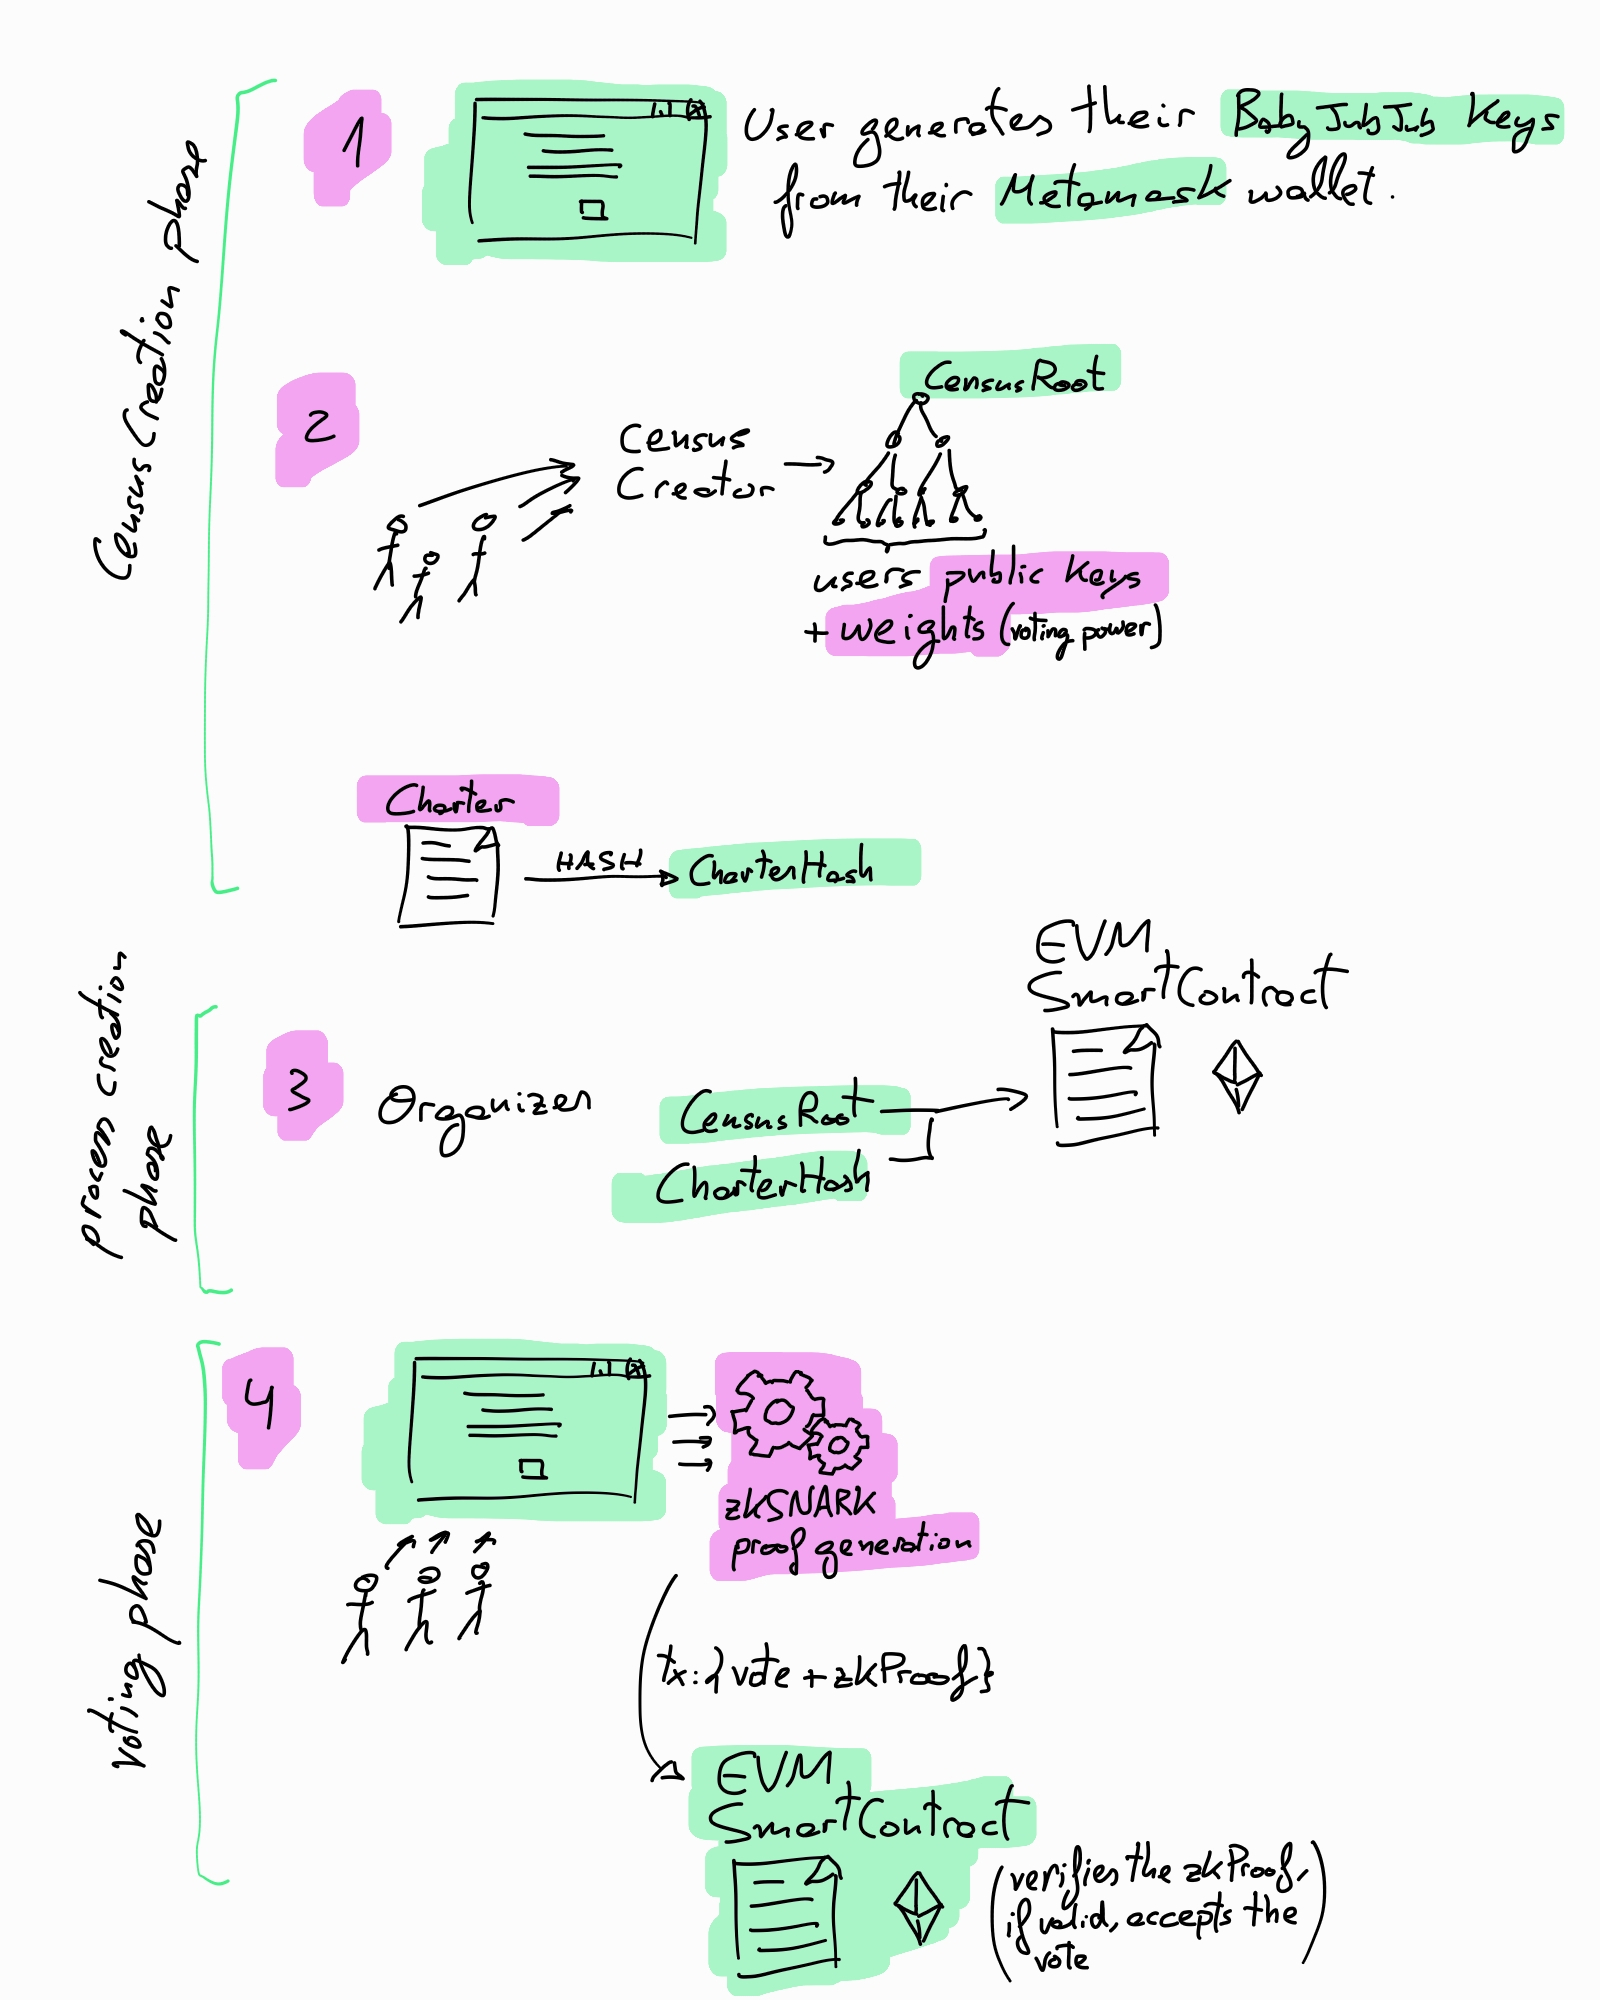 Census Creation phase
1
User generates their BabyJubJub Keys
from their Metamask wallet.
2
Census
Creator
CensusRoot
users public keys
+ weights (voting power)
Charter
HASH
CharterHash
process creation
phase
3
Organizer
CensusRoot
CharterHash
EVM
SmartContract
voting phase
4
zkSNARK
proof generation
tx:{vote + zkProof}
EVM
SmartContract
(verifies the zkProof,
if valid, accepts the
vote)